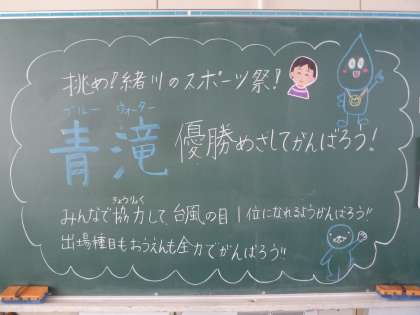 挑め!緒川のスポーツ祭!
ブルー ウォーター
青滝 優勝めざしてがんばろう!
きょうりょく
みんなで協力して、台風の目1位になれるようがんばろう!!
出場種目もおうえんも全力でがんばろう!!